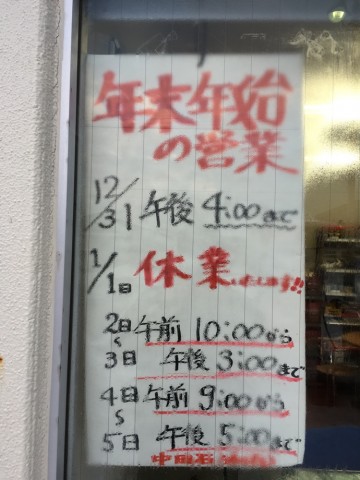 年末年始
の営業
12/31 午後 4:00まで
1/1日 休業いたします!!
2日 午前 10:00から
〜
3日 午後 3:00まで
4日 午前 9:00から
〜
5日 午後 5:00まで